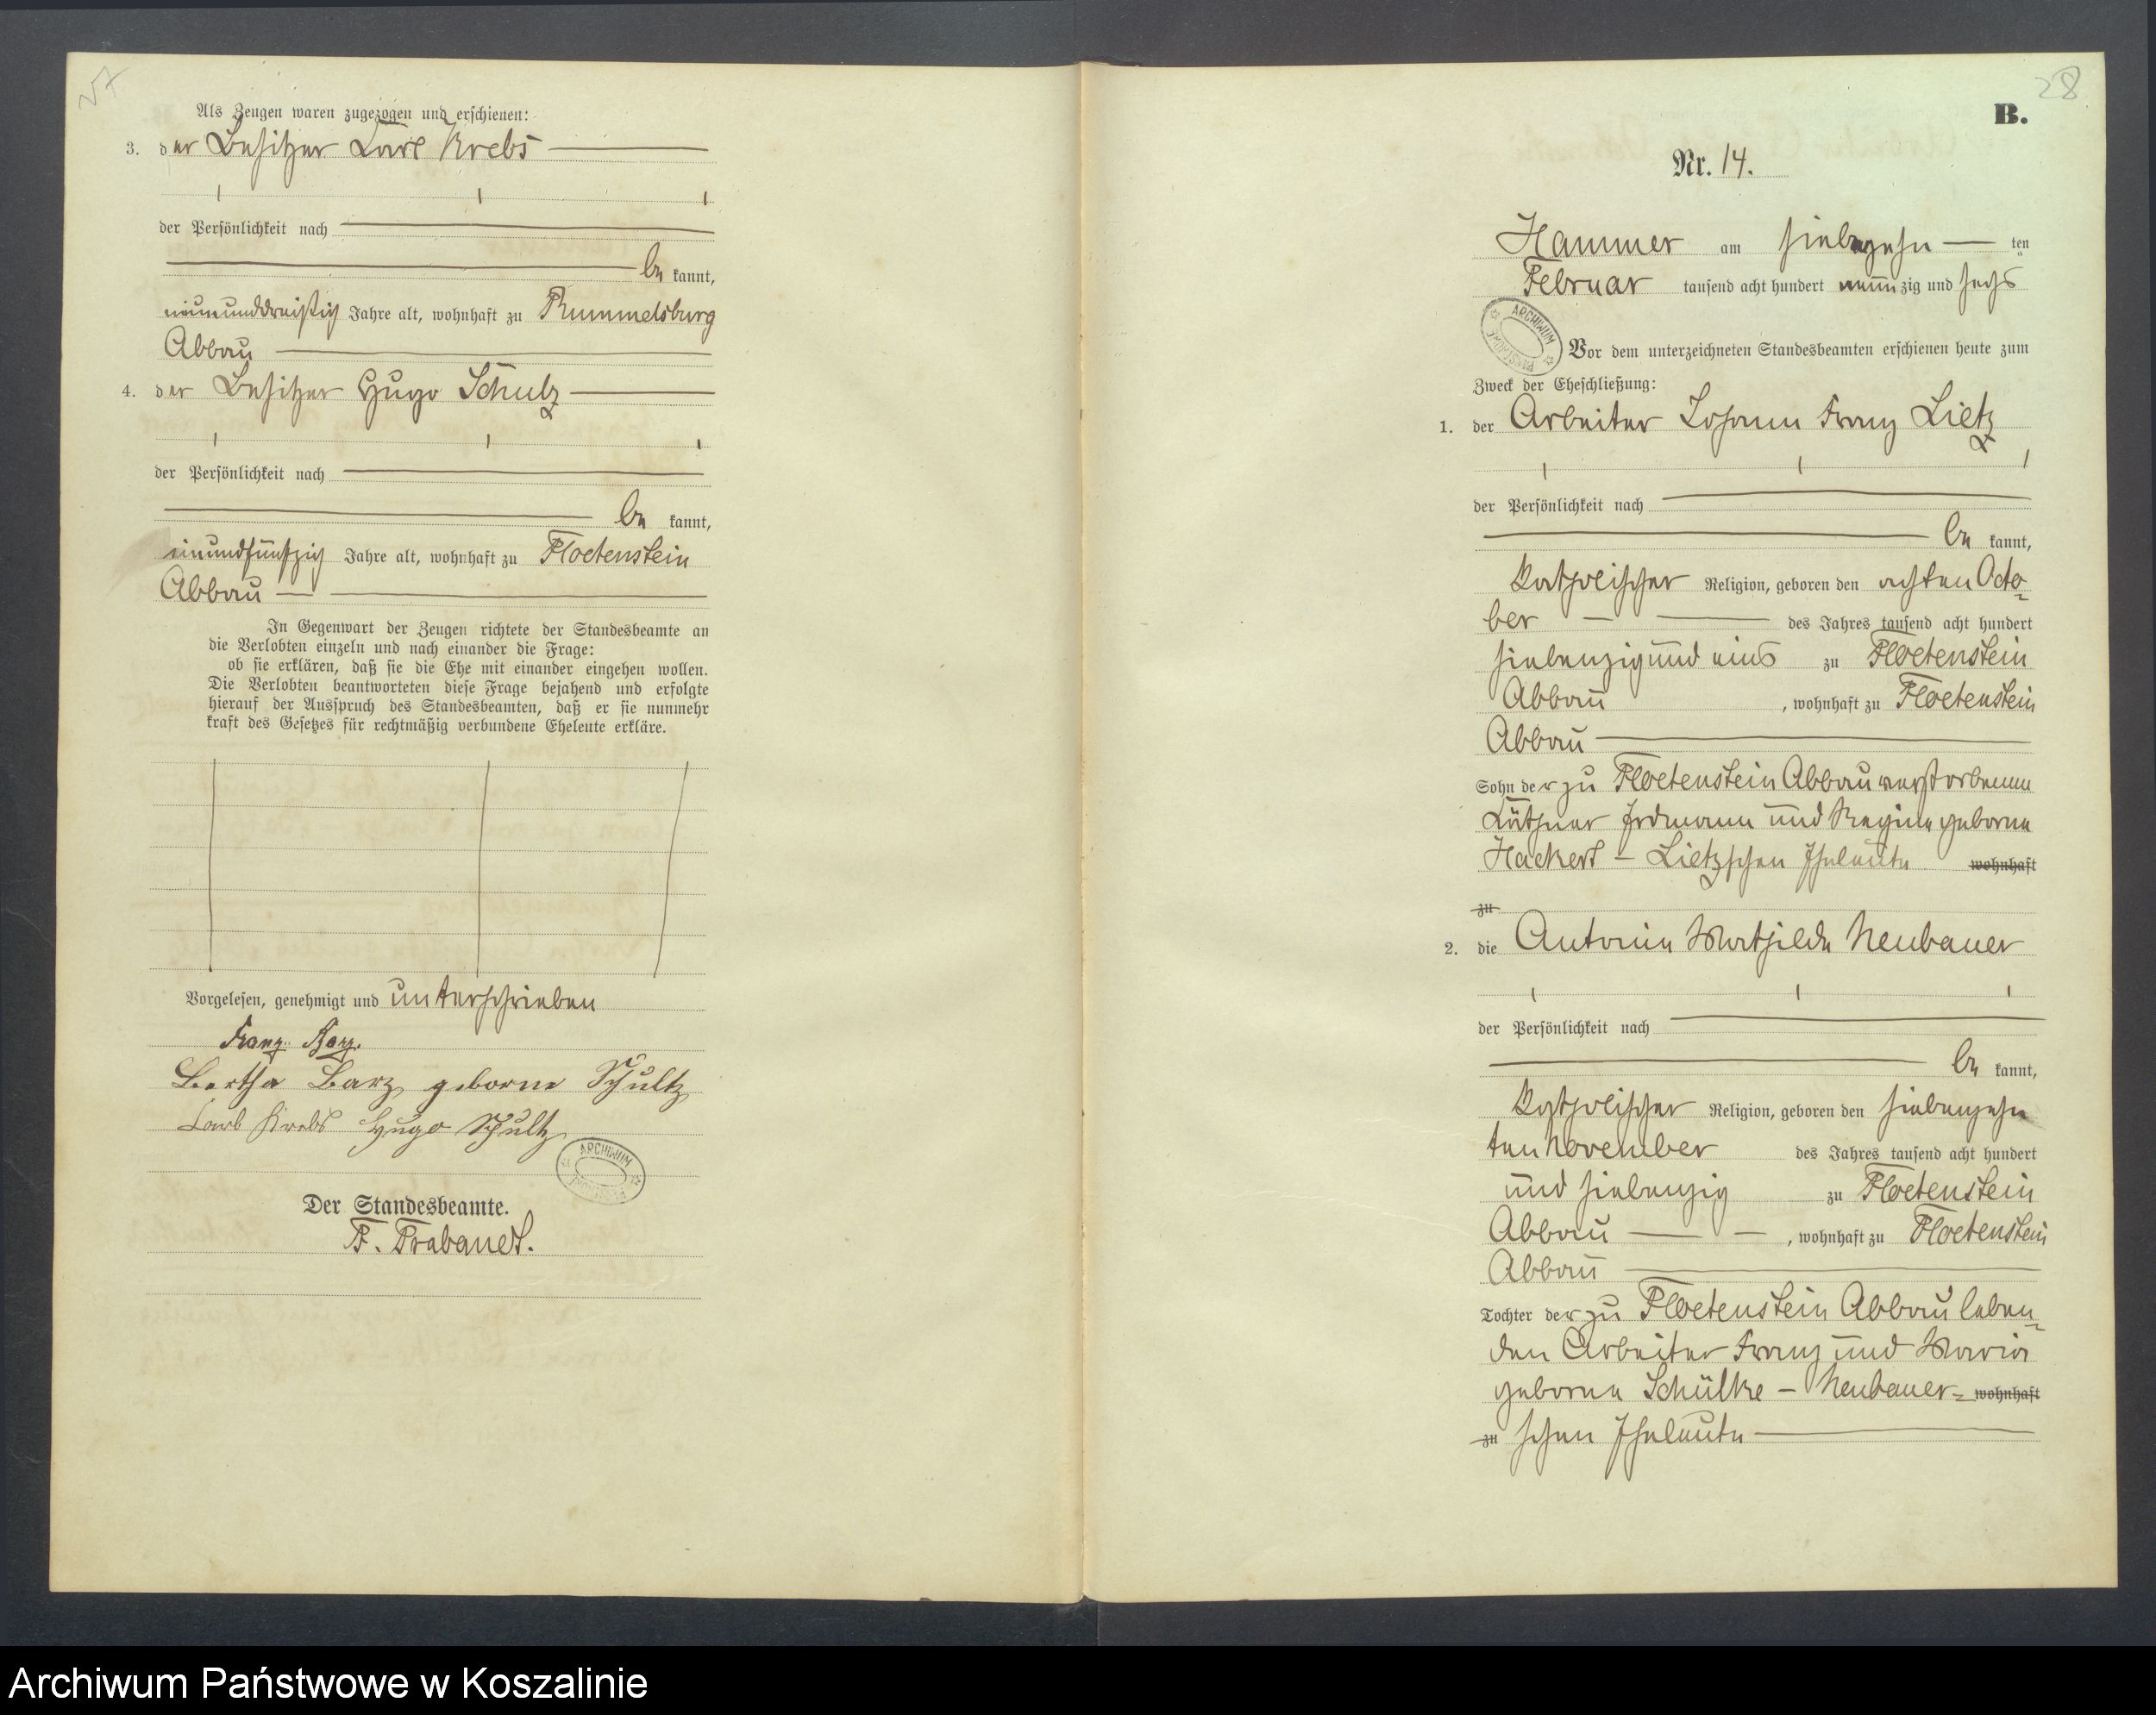 Als Zeugen waren zugezogen und erschienen:
3. der Besitzer Carl Krebs
der Persönlichkeit nach
be kannt,
neununddreißig Jahre alt, wohnhaft zu Rummelsburg
Abbau
4. der Besitzer Hugo Schulz
der Persönlichkeit nach
be kannt,
einundfünfzig Jahre alt, wohnhaft zu Floetenstein
Abbau
In Gegenwart der Zeugen richtete der Standesbeamte an
die Verlobten einzeln und nach einander die Frage:
ob sie erklären, daß sie die Ehe mit einander eingehen wollen.
Die Verlobten beantworteten diese Frage bejahend und erfolgte
hierauf der Ausspruch des Standesbeamten, daß er sie nunmehr
kraft des Gesetzes für rechtmäßig verbundene Eheleute erkläre.
Vorgelesen, genehmigt und unterschrieben
Franz Barz.
Bertha Barz geborne Schultz
Carl Krebs Hugo Schultz
ARCHIWUM
Der Standesbeamte.
F. Trabandt.
28
B.
Nr. 14.
Hammer am siebzehn ten
Februar tausend acht hundert neun zig und sechs
ARCHIWUM PAŃSTWOWE
Vor dem unterzeichneten Standesbeamten erschienen heute zum
Zweck der Eheschließung:
1. der Arbeiter Johann Franz Lietz
der Persönlichkeit nach
be kannt,
katholischer Religion, geboren den achten Octo-
ber des Jahres tausend acht hundert
siebenzig und eins zu Floetenstein
Abbau , wohnhaft zu Floetenstein
Abbau
Sohn der zu Floetenstein Abbau verstorbenen
Käthner Erdmann und Regine geborne
Hackert - Lietzschen Eheleute wohnhaft
zu
2. die Antonie Mathilde Neubauer
der Persönlichkeit nach
be kannt,
katholischer Religion, geboren den siebenzehn
ten November des Jahres tausend acht hundert
und siebenzig zu Floetenstein
Abbau , wohnhaft zu Floetenstein
Abbau
Tochter der zu Floetenstein Abbau leben-
den Arbeiter Franz und Maria
geborne Schülke - Neubauer- wohnhaft
zu schen Eheleute
Archiwum Państwowe w Koszalinie